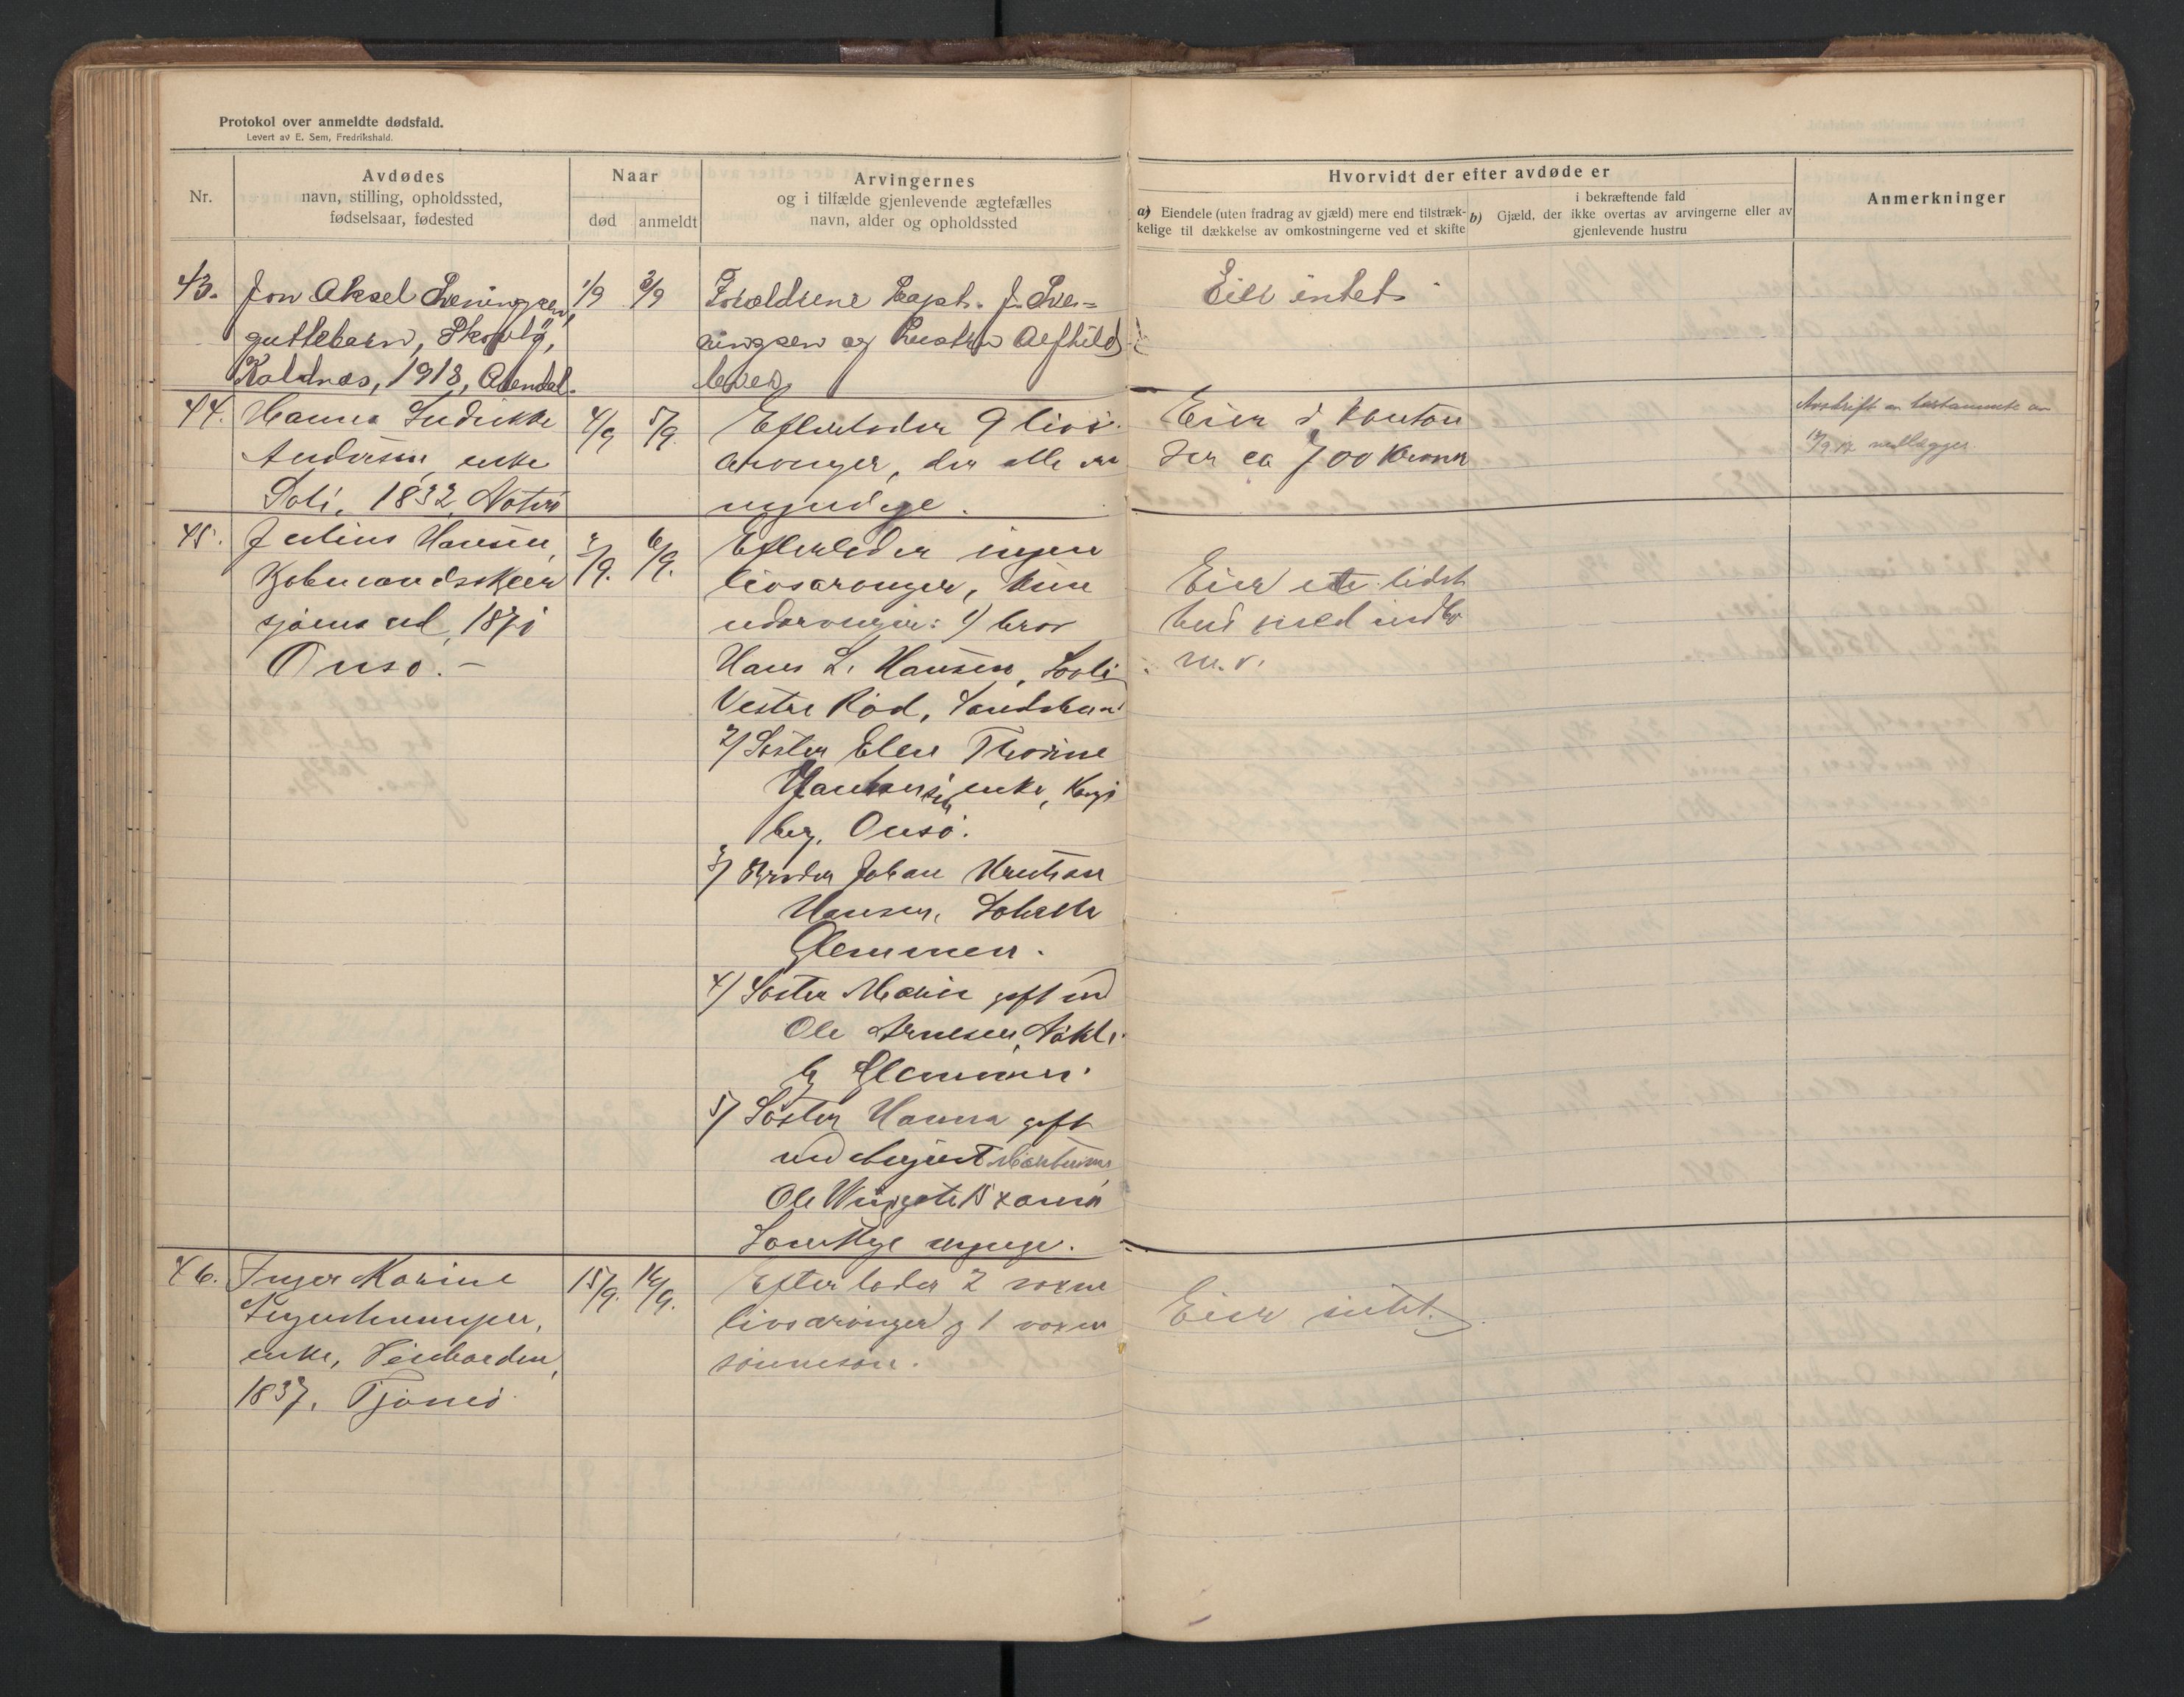 Protokol over anmeldte dødsfald.
Levert av E. Sem, Fredrikshald.
Nr.
Avdødes
navn, stilling, opholdssted,
fødselsaar, fødested
Naar
død
anmeldt
Arvingernes
og i tilfælde gjenlevende ægtefælles
navn, alder og opholdssted
Hvorvidt der efter avdøde er
a) Eiendele (uten fradrag av gjæld) mere end tilstræk-
kelige til dækkelse av omkostningerne ved et skifte
i bekræftende fald
b) Gjæld, der ikke overtas av arvingerne eller av
gjenlevende hustru
Anmerkninger
43.
Jon Aksel
guttebarn,
Kaldnæs, 1918, Arendal.
1/9
3/9
Forældrene Kapt. J.
og hustru Alfhild
lever
Eier intet
44.
Hanna Fredrikke
Andersen, enke
1832, Nøterø
4/9
5/9.
Efterlader 9 livs
arvinger, der alle er
myndige.
Eier i kontan
ter ca 700 kroner
Avskrift av testamente av
45.
Julius Hansen,
1871
Onsø. -
/9.
6/9.
Efterlader ingen
livsarvinger, kun
udarvinger: 1) bror
Hans L. Hansen,
Vestre Rød,
2) Søster Elen Thorine
enke,
berg, Onsø.
3) Broder Johan Kristian
Hansen,
Glemmen.
4) Søster Marie gift med
Ole Arnesen,
Glemmen.
5) Søster Hanna gift
med August
Ole 15
Samtlige
Eier et lidet
hus med indbo
m.v.
46.
Inger Marine
enke,
1837, Tjømø
15/9.
16/9.
Efterlader 2 voxne
livsarvinger og 1 voxen
sønnesøn.
Eier intet.